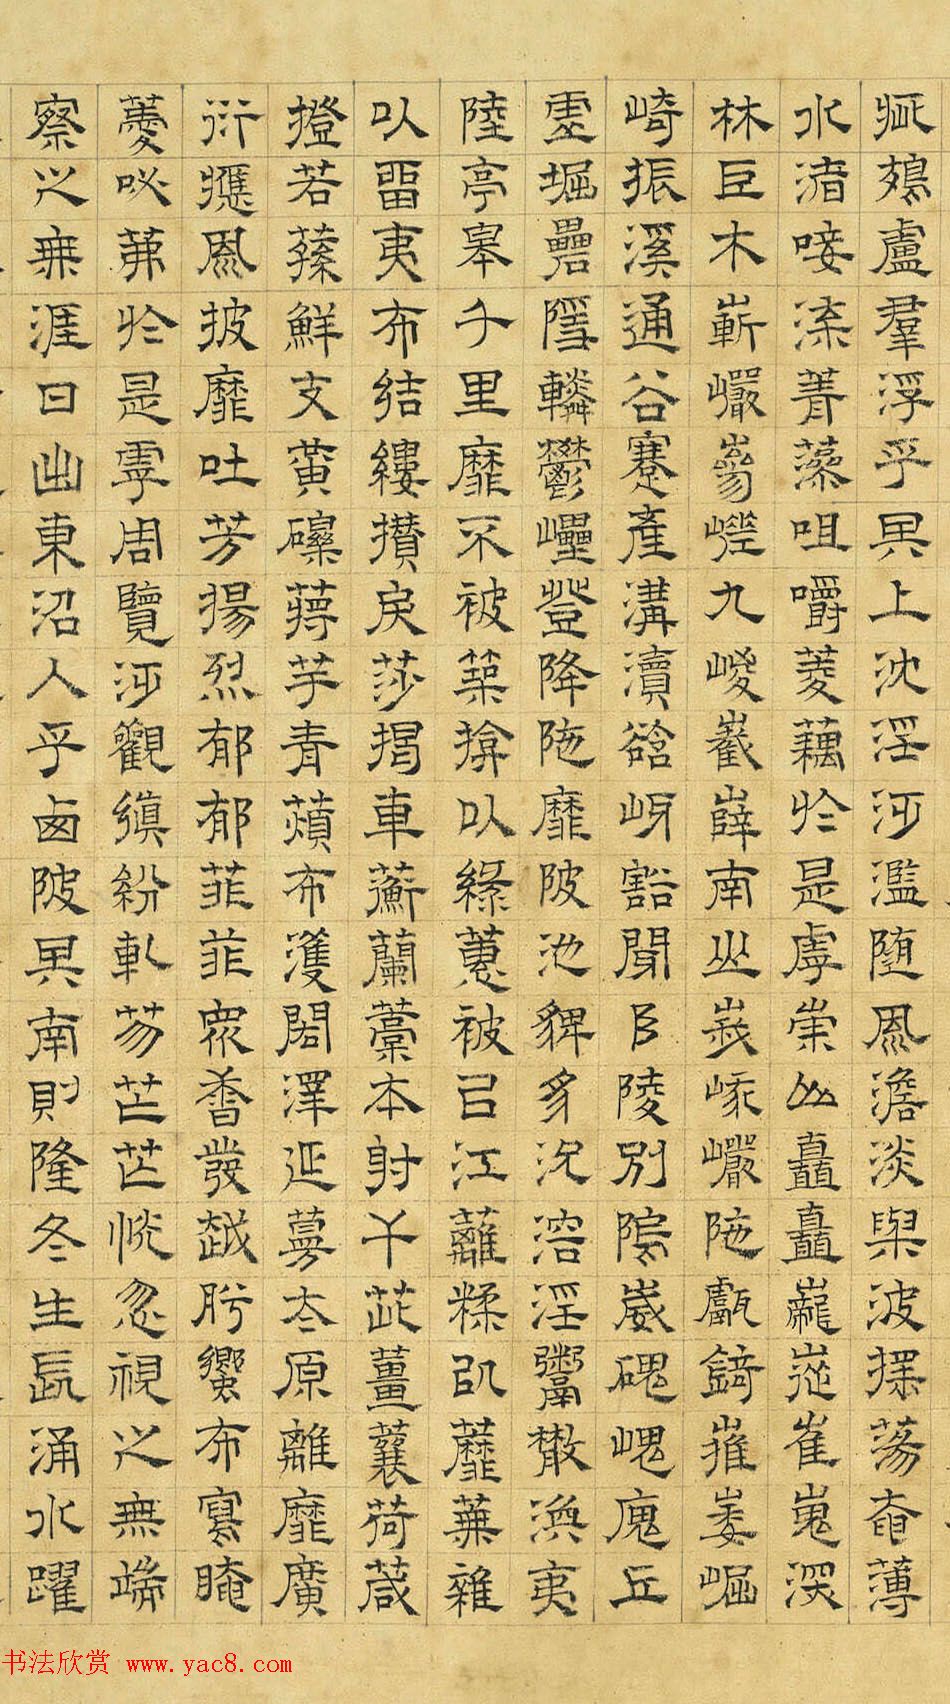 疵鵁盧羣浮乎其上沈淫泛濫随風澹淡與波揺蕩奄薄
水渚唼㳻菁藻咀嚼菱藕於是虖崇山矗矗巃嵸崔嵬深
林巨木嶄巖參嵯九嵕嶻嶭南山峩峩巖陁甗錡摧崣崛
崎振溪通谷蹇產溝瀆谽岈豁閜阜陵別隝崴磈嵔廆丘
虛堀礨隱轔鬱㠥登降陁靡陂池貏豸沇溶淫鬻散渙夷
陸亭皋千里靡不被築揜以綠蕙被以江蘺糅以蘪蕪雜
以畱夷布結縷攢戾莎揭車蘅蘭稾本射干茈薑蘘荷葴
橙若蓀鮮支黃礫蔣芧青薠布濩閎澤延蔓太原離靡廣
衍應風披靡吐芳揚烈郁郁菲菲衆香發越肸蠁布寫晻
薆咇茀於是虖周覽泛觀縝紛軋芴芒芒怳忽視之無端
察之無涯日出東沼入乎西陂其南則隆冬生長涌水躍
书法欣赏 www.yac8.com